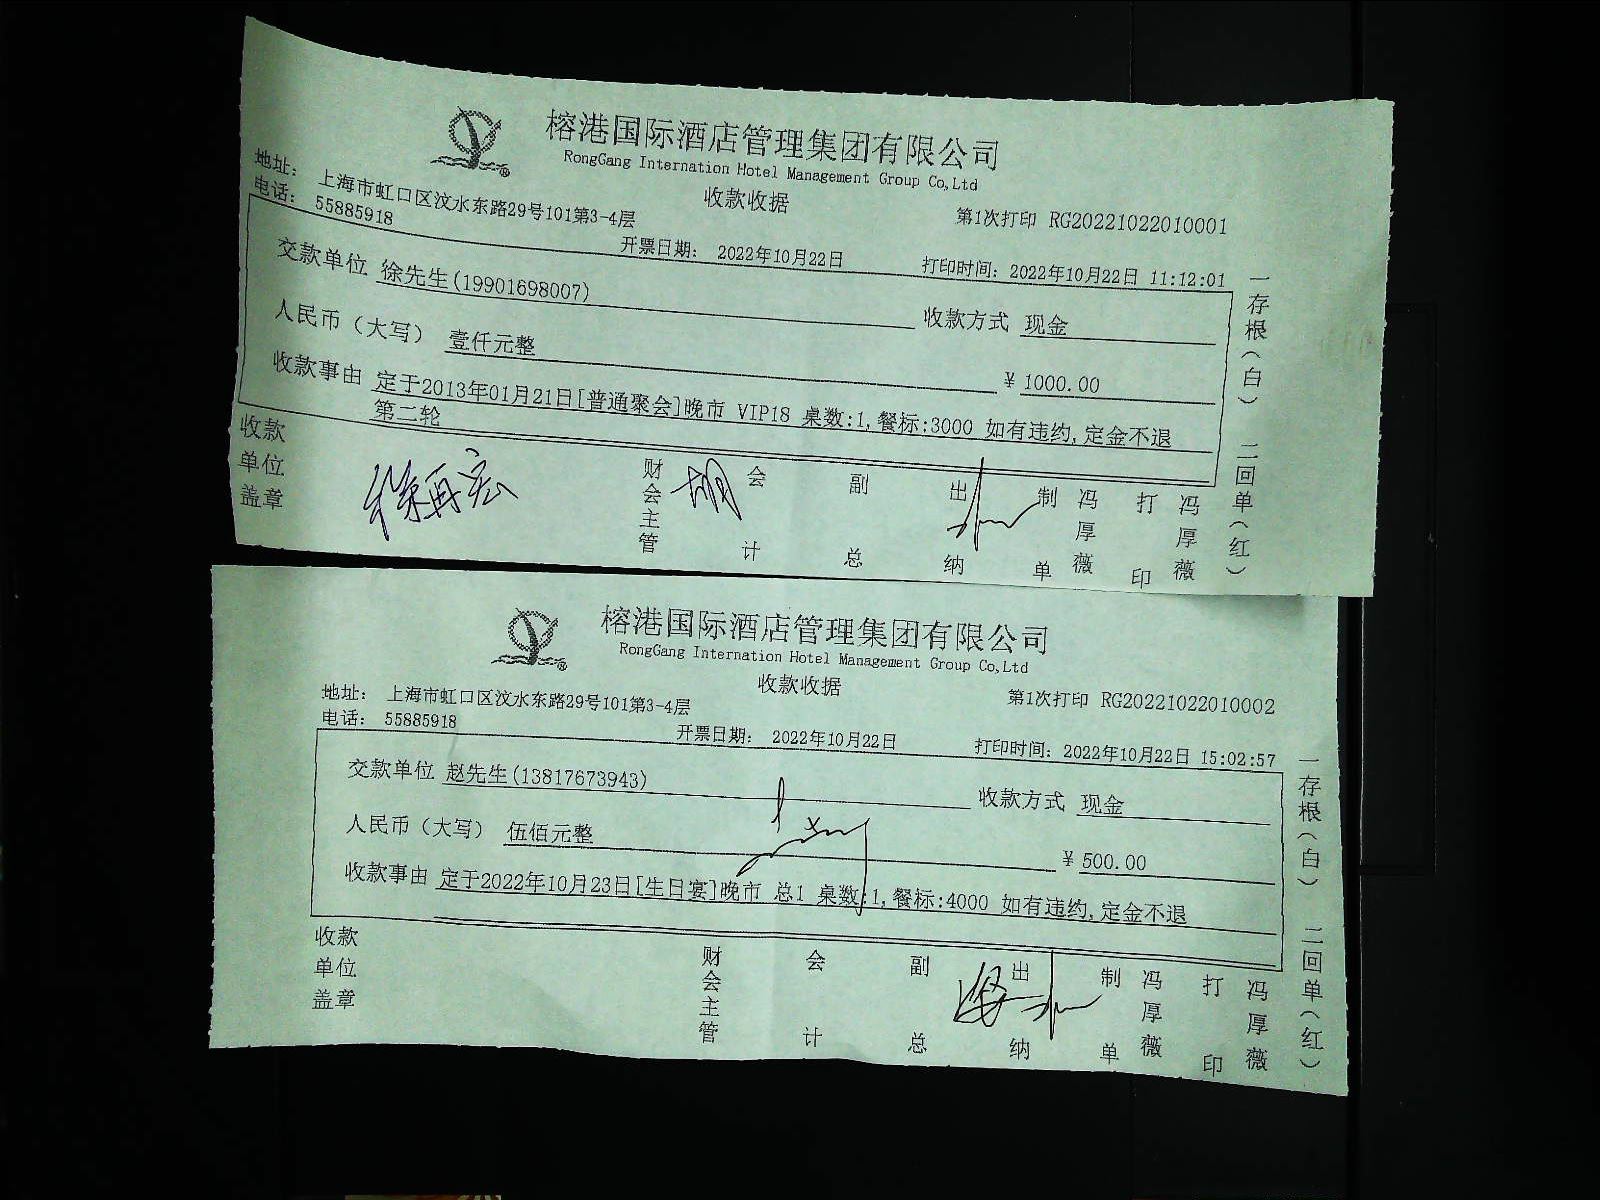 榕港国际酒店管理集团有限公司
RongGang Internation Hotel Management Group Co,Ltd
收款收据
地址： 上海市虹口区汶水东路29号101第3-4层
第1次打印 RG20221022010001
电话： 55885918
开票日期： 2022年10月22日
打印时间：2022年10月22日 11:12:01
交款单位 徐先生(19901698007)
收款方式 现金
人民币（大写） 壹仟元整
¥ 1000.00
收款事由 定于2013年01月21日[普通聚会]晚市 VIP18 桌数:1,餐标:3000 如有违约,定金不退
第二轮
收款单位盖章
徐再宏
财会主管
胡
会计
副总
出纳
制单 冯厚薇
打印 冯厚薇
一存根（白） 二回单（红）
榕港国际酒店管理集团有限公司
RongGang Internation Hotel Management Group Co,Ltd
收款收据
地址： 上海市虹口区汶水东路29号101第3-4层
第1次打印 RG20221022010002
电话： 55885918
开票日期： 2022年10月22日
打印时间：2022年10月22日 15:02:57
交款单位 赵先生(13817673943)
收款方式 现金
人民币（大写） 伍佰元整
¥ 500.00
收款事由 定于2022年10月23日[生日宴]晚市 总1 桌数:1,餐标:4000 如有违约,定金不退
收款单位盖章
财会主管
会计
副总
出纳
制单 冯厚薇
打印 冯厚薇
一存根（白） 二回单（红）